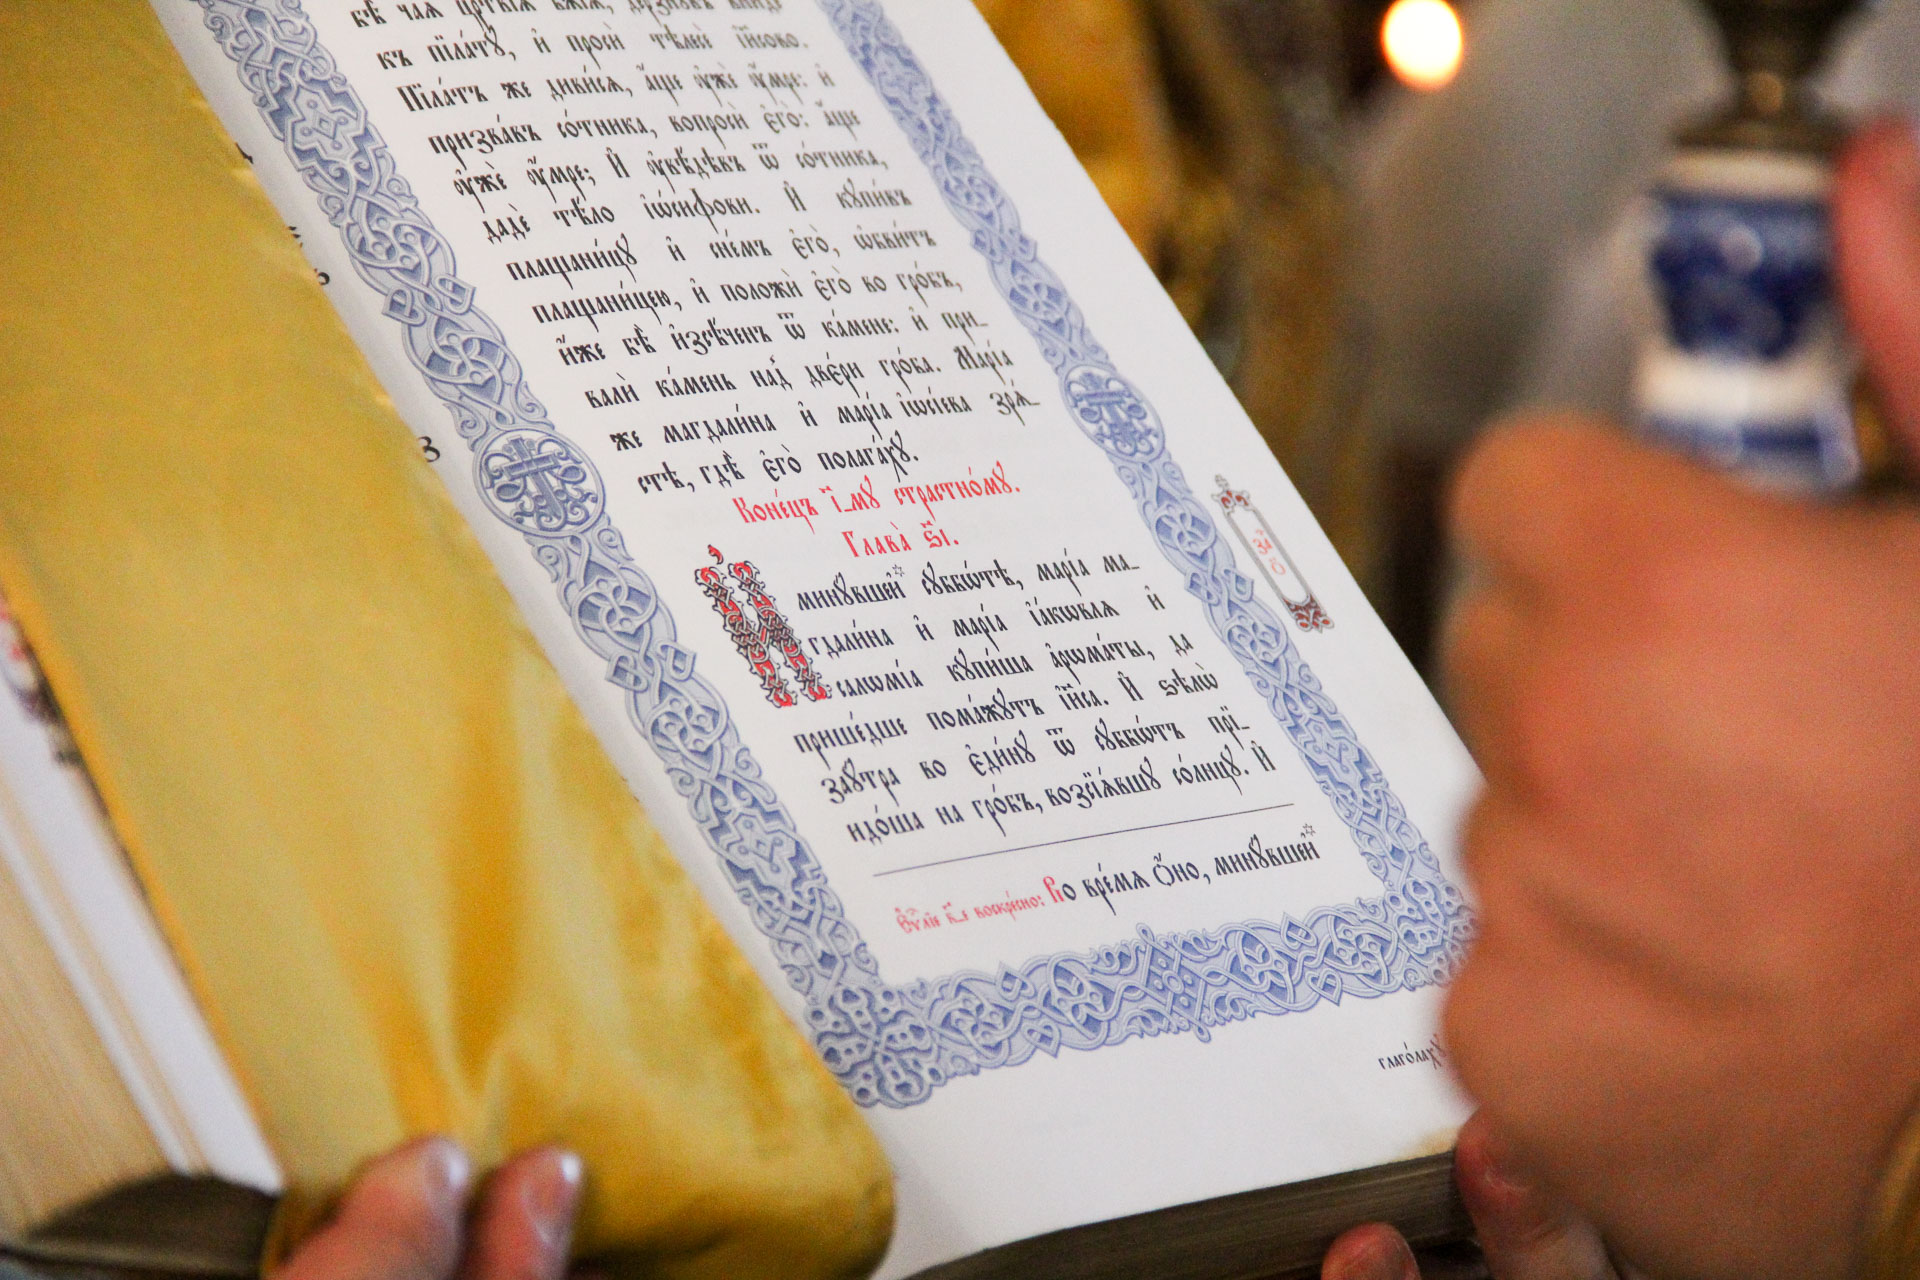 бѣ̀ чаѧ црⷭ҇твїѧ бж҃їѧ, дерзнꙋ́въ вни́де
къ пїла́тꙋ, и҆ просѝ тѣлесѐ і҆и҃сово.
Пїла́тъ же диви́сѧ, а҆́ще ᲂу҆жѐ ᲂу҆́мре: и҆
призва́въ со́тника, вопросѝ є҆го̀: а҆́ще
ᲂу҆жѐ ᲂу҆́мре; И҆ ᲂу҆вѣ́дѣвъ ѿ со́тника,
дадѐ тѣ́ло і҆ѡ́сифови. И҆ кꙋпи́въ
плащани́цꙋ и҆ сне́мъ є҆го̀, ѡ҆бви́тъ
плащани́цею, и҆ положѝ є҆го̀ во гро́бъ,
и҆́же бѣ̀ и҆зсѣ́ченъ ѿ ка́мене: и҆ при-
валѝ ка́мень над̾ двє́ри гро́ба. Марі́а
же магдали́на и҆ марі́а і҆ѡсі́ева зрѧ́-
стѣ, гдѣ̀ є҆го̀ полага́хꙋ.
Коне́цъ і҃-мꙋ страстно́мꙋ.
Глава̀ ѕ҃і.
И҆ минꙋ́вшей꙳ сꙋббѡ́тѣ, марі́а ма-
гдали́на и҆ марі́а і҆а́кѡвлѧ и҆
салѡмі́а кꙋпи́ша а҆рѡма́ты, да
прише́дше пома́жꙋтъ і҆и҃са. И҆ ѕѣлѡ̀
заꙋ́тра во є҆ди́нꙋ ѿ сꙋббѡ́тъ прїи-
ндо́ша на гро́бъ, возсїѧ́вшꙋ со́лнцꙋ. И҆
Ѻ҆ Во вре́мѧ ѻ҆́но, минꙋ́вшей꙳
глаго́лахꙋ